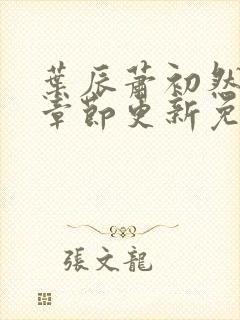 葉辰蕭初然
章節更新免
張文龍